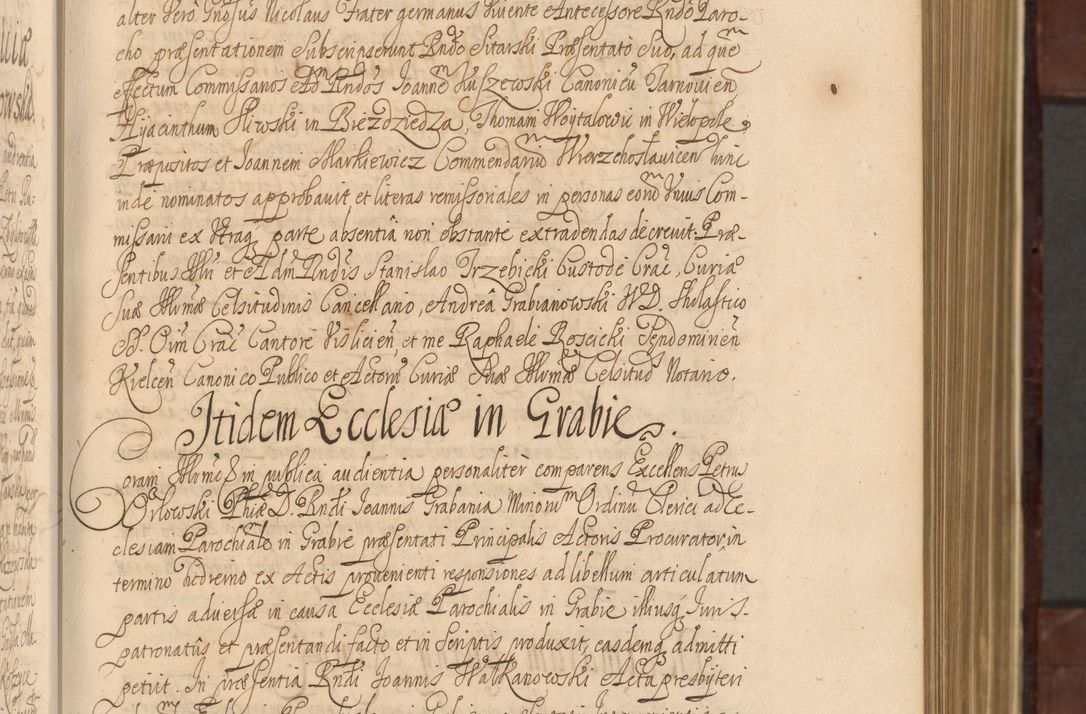 alter Vero Gnosus Nicolaus Frater germanus vivente Antecessore Rndo Paro-
cho præsentationem subscripserunt Rndo Sitarski Præsentato suo, ad quem
effectum Commissarios Ad Rndos Joannem Kuszewski Canonicu Tarnovien
Hyacinthum Sliwski in Brezdziedza, Thomam Woytalowic in Wielopole
Præpositos et Joannem Markiewicz Commendariu Wierzchoslavicen hinc
inde nominatos approbavit et literas remissoriales in personas eorum Unius Com-
missarii ex Utraq parte absentiâ non obstante extradendas decrevit. Præ-
sentibus Illri et Adm Rndis Stanislao Trzebicki Custode Crac, Curiæ
Suæ Illrmæ Celsitudinis Cancellario, Andreâ Grabianowski W.D. Sholastico
SS. Oim Crac Cantore Visliciен, et me Raphaele Roscicki Sendomirien
Kielcen Canonico Publico et Actoru Curiæ Suæ Illrmæ Celsitud Notario.
Itidem Ecclesiæ in Grabie.
Coram Illrmo & in publica audientia personaliter comparens Excellens Petrus
Orlowski Phiæ D. Rndi Joannis Grabania Minorum Ordinu Clerici ad Ec-
clesiam Parochialem in Grabie præsentati Principalis Actoris Procurator in
termino hodierno ex Actis provenienti responsiones ad libellum articulatum
partis adversæ in causa Ecclesiæ Parochialis in Grabie illiusq Juris-
patronatûs et præsentandi facto et in scriptis produxit, easdemq admitti
petiit. In præsentia Rndi Joannis Walkanowski Acta presbyteri